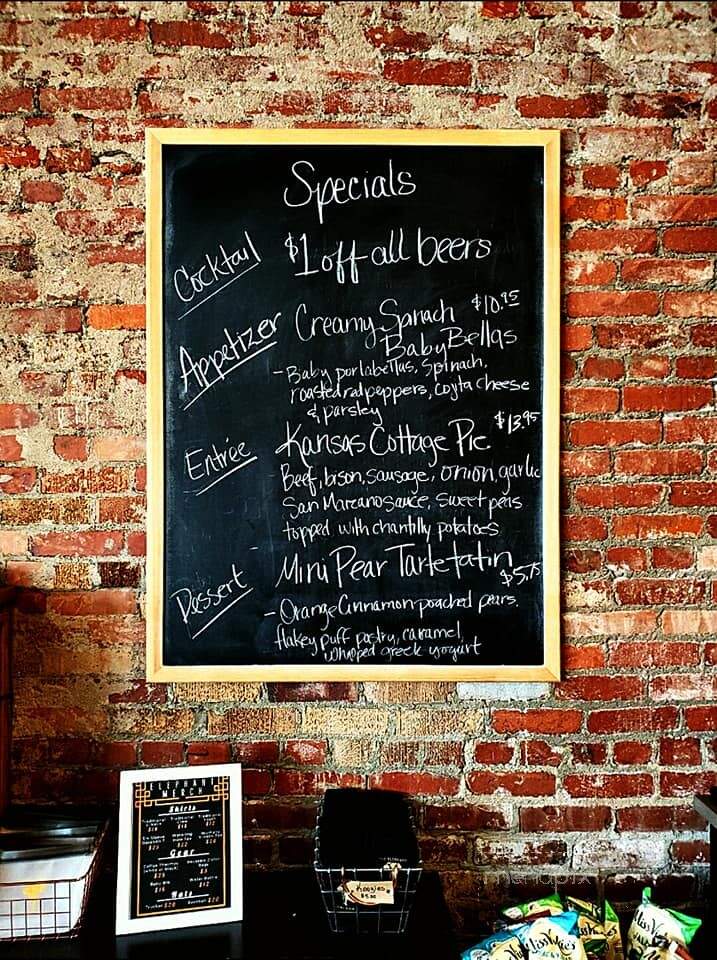 Specials
Cocktail
$1 off all beers
Appetizer
Creamy Spinach $10.95
Baby Bellas
- Baby portabellas, Spinach,
roasted red peppers, cojta cheese
& parsley
Entrée
Kansas Cottage Pie $13.95
Beef, bison, sausage, onion, garlic
San Marzano sauce, sweet peas
topped with chantilly potatoes
Dessert
Mini Pear Tartetatin
$5.75
- Orange Cinnamon poached pears.
flakey puff pastry, caramel,
whipped greek yogurt
ELEPHANT
MERCH
Shirts
Gear
Hats
Trucker $20
Koozies
$5.00
Miss Vickie's
Miss Vickie's